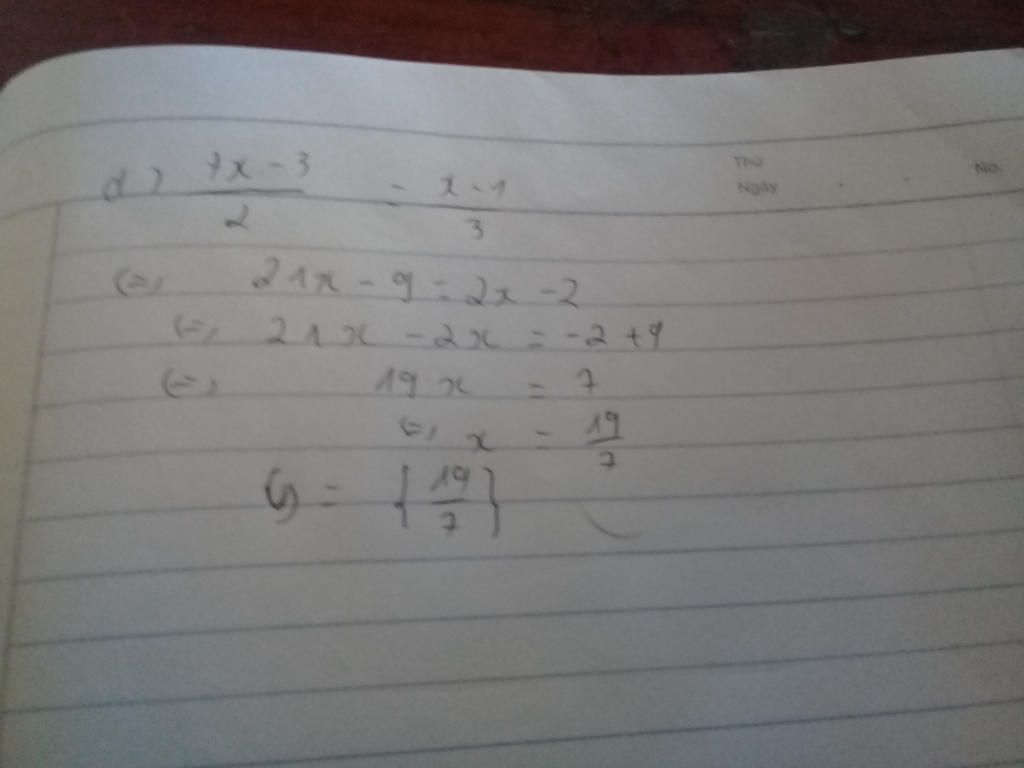 Thứ
Ngày . . No.
d) \frac{7x - 3}{2} = \frac{x - 1}{3}
(=) 21x - 9 = 2x - 2
(=) 21x - 2x = -2 + 9
(=) 19x = 7
(=) x = \frac{19}{7}
S = { \frac{19}{7} }